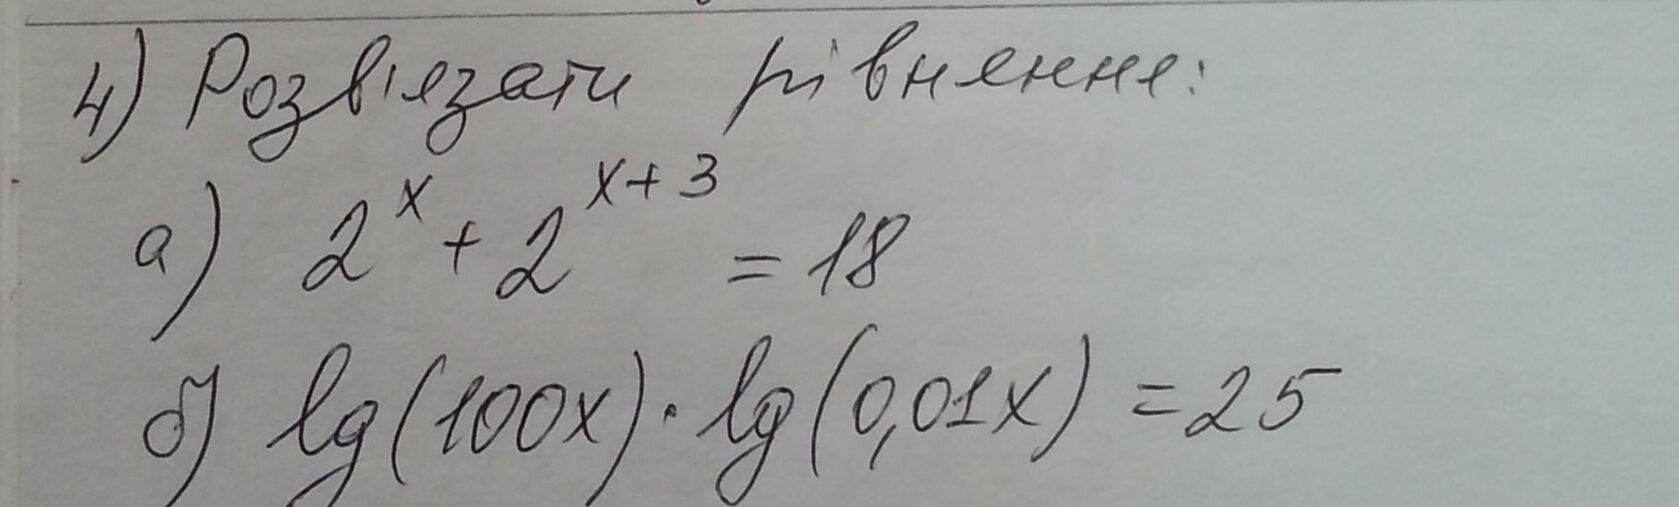 4) Розв'язати рівняння:
а) 2^x + 2^{x+3} = 18
б) lg(100x) · lg(0,01x) = 25